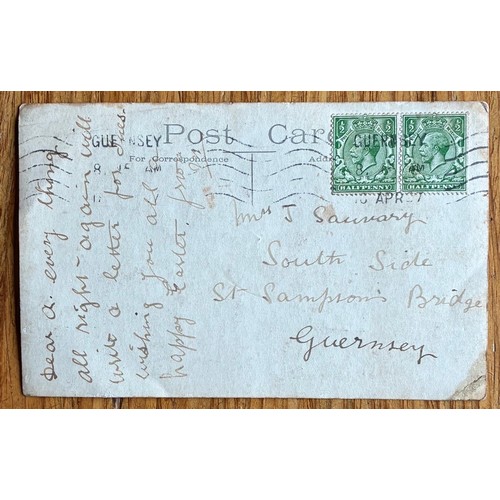 Post Card
For Correspondence
GUERNSEY
GUERNSEY
APR 27
HALFPENNY
HALFPENNY
Dear A. every thing
all right again will
write a letter for Tues
wishing you all
happy Easter from
Mrs J Sauvary
South Side
St Sampson's Bridge
Guernsey